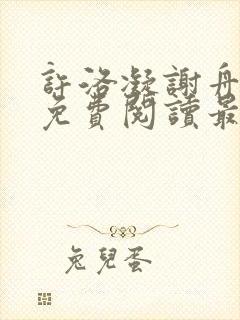 許洛凝謝舟
免費閱讀最
兔兒蛋